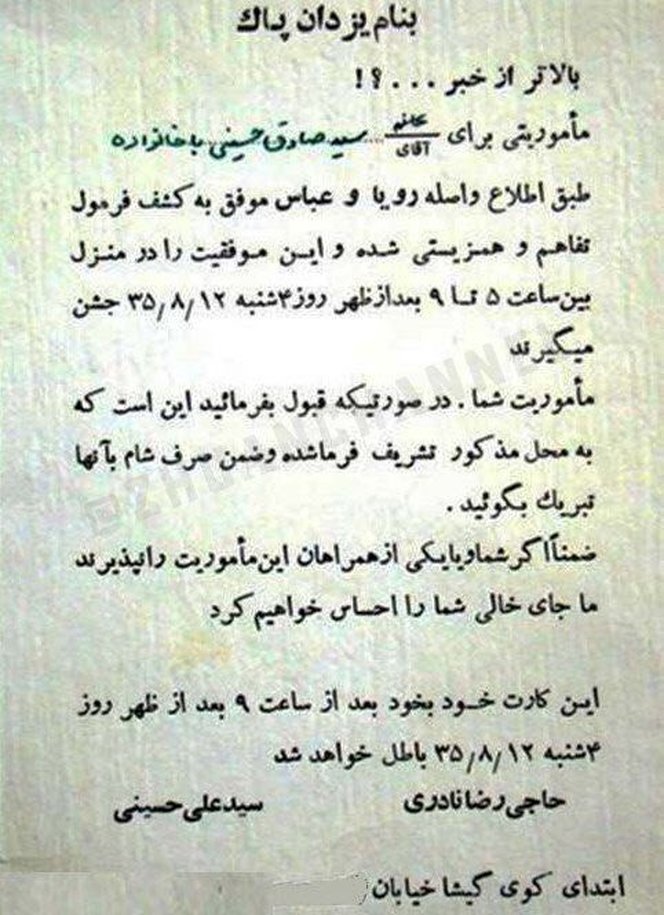 بنام یزدان پاک
بالاتر از خبر ...؟!
مأموریتی برای خانم آقای ... سید صادق حسینی با خانواده
طبق اطلاع واصله رویا و عباس موفق به کشف فرمول
تفاهم و همزیستی شده و این موفقیت را در منزل
بین ساعت ۵ تا ۹ بعدازظهر روز ۴شنبه ۳۵/۸/۱۲ جشن
میگیرند
مأموریت شما. در صورتیکه قبول بفرمائید این است که
به محل مذکور تشریف فرما شده و ضمن صرف شام بآنها
تبریک بگوئید.
ضمناً اگر شما و یا یکی از همراهان این مأموریت را نپذیرند
ما جای خالی شما را احساس خواهیم کرد
این کارت خود بخود بعد از ساعت ۹ بعد از ظهر روز
۴شنبه ۳۵/۸/۱۲ باطل خواهد شد
حاجی رضا نادری سید علی حسینی
ابتدای کوی گیشا خیابان
@ZHUANCHANNEL